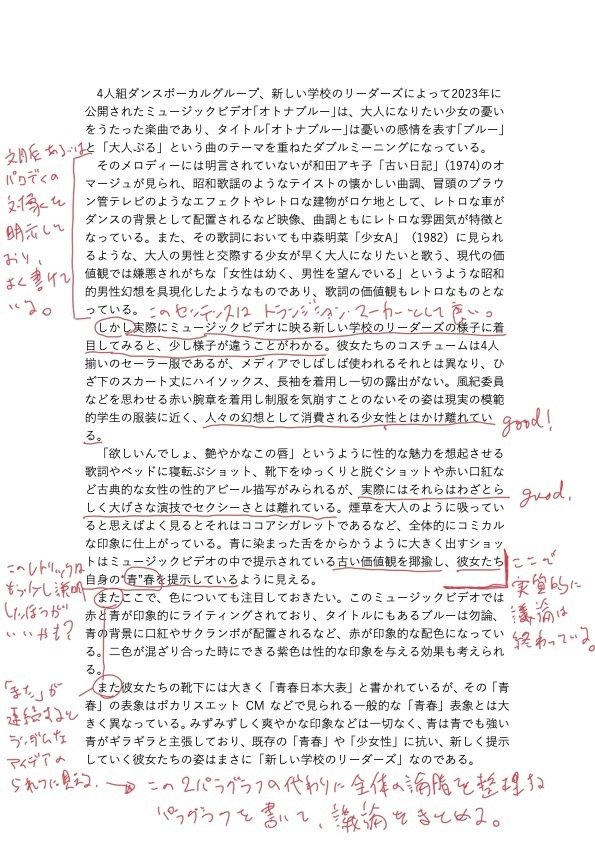 4人組ダンスボーカルグループ、新しい学校のリーダーズによって2023年に
公開されたミュージックビデオ｢オトナブルー｣は、大人になりたい少女の憂い
をうたった楽曲であり、タイトル｢オトナブルー｣は憂いの感情を表す｢ブルー｣
と「大人ぶる」という曲のテーマを重ねたダブルミーニングになっている。
そのメロディーには明言されていないが和田アキ子「古い日記」(1974)のオ
マージュが見られ、昭和歌謡のようなテイストの懐かしい曲調、冒頭のブラウ
ン管テレビのようなエフェクトやレトロな建物がロケ地として、レトロな車が
ダンスの背景として配置されるなど映像、曲調ともにレトロな雰囲気が特徴と
なっている。また、その歌詞においても中森明菜「少女A」（1982）に見られ
るような、大人の男性と交際する少女が早く大人になりたいと歌う、現代の価
値観では嫌悪されがちな「女性は幼く、男性を望んでいる」というような昭和
的男性幻想を具現化したようなものであり、歌詞の価値観もレトロなものとな
っている。
このセンテンスは トランジション・マーカーとして良い。
明示して
おり、
よく書けて
いる。
しかし実際にミュージックビデオに映る新しい学校のリーダーズの様子に着
目してみると、少し様子が違うことがわかる。彼女たちのコスチュームは4人
揃いのセーラー服であるが、メディアでしばしば使われるそれとは異なり、ひ
ざ下のスカート丈にハイソックス、長袖を着用し一切の露出がない。風紀委員
などを思わせる赤い腕章を着用し制服を気崩すことのないその姿は現実の模範
的学生の服装に近く、人々の幻想として消費される少女性とはかけ離れてい
る。
good!
「欲しいんでしょ、艶やかなこの唇」というように性的な魅力を想起させる
歌詞やベッドに寝転ぶショット、靴下をゆっくりと脱ぐショットや赤い口紅な
ど古典的な女性の性的アピール描写がみられるが、実際にはそれらはわざとら
しく大げさな演技でセクシーさとは離れている。煙草を大人のように吸ってい
ると思えばよく見るとそれはココアシガレットであるなど、全体的にコミカル
な印象に仕上がっている。青に染まった舌をからかうように大きく出すショッ
トはミュージックビデオの中で提示されている古い価値観を揶揄し、彼女たち
自身の"青"春を提示しているように見える。
good.
このレトリックは
もう少し説明
したほうが
いいかも?
ここで
実質的に
議論は
終わっている。
またここで、色についても注目しておきたい。このミュージックビデオでは
赤と青が印象的にライティングされており、タイトルにもあるブルーは勿論、
青の背景に口紅やサクランボが配置されるなど、赤が印象的な配色になってい
る。二色が混ざり合った時にできる紫色は性的な印象を与える効果も考えられ
る。
また彼女たちの靴下には大きく「青春日本大表」と書かれているが、その「青
春」の表象はポカリスエット CM などで見られる一般的な「青春」表象とは大
きく異なっている。みずみずしく爽やかな印象などは一切なく、青は青でも強い
青がギラギラと主張しており、既存の「青春」や「少女性」に抗い、新しく提示
していく彼女たちの姿はまさに「新しい学校のリーダーズ」なのである。
「また」が
連続すると
ランダムな
アイデアの
られつに見える。
この2パラグラフの代わりに全体の論脈を整理する
パラグラフを書いて、議論をまとめる。